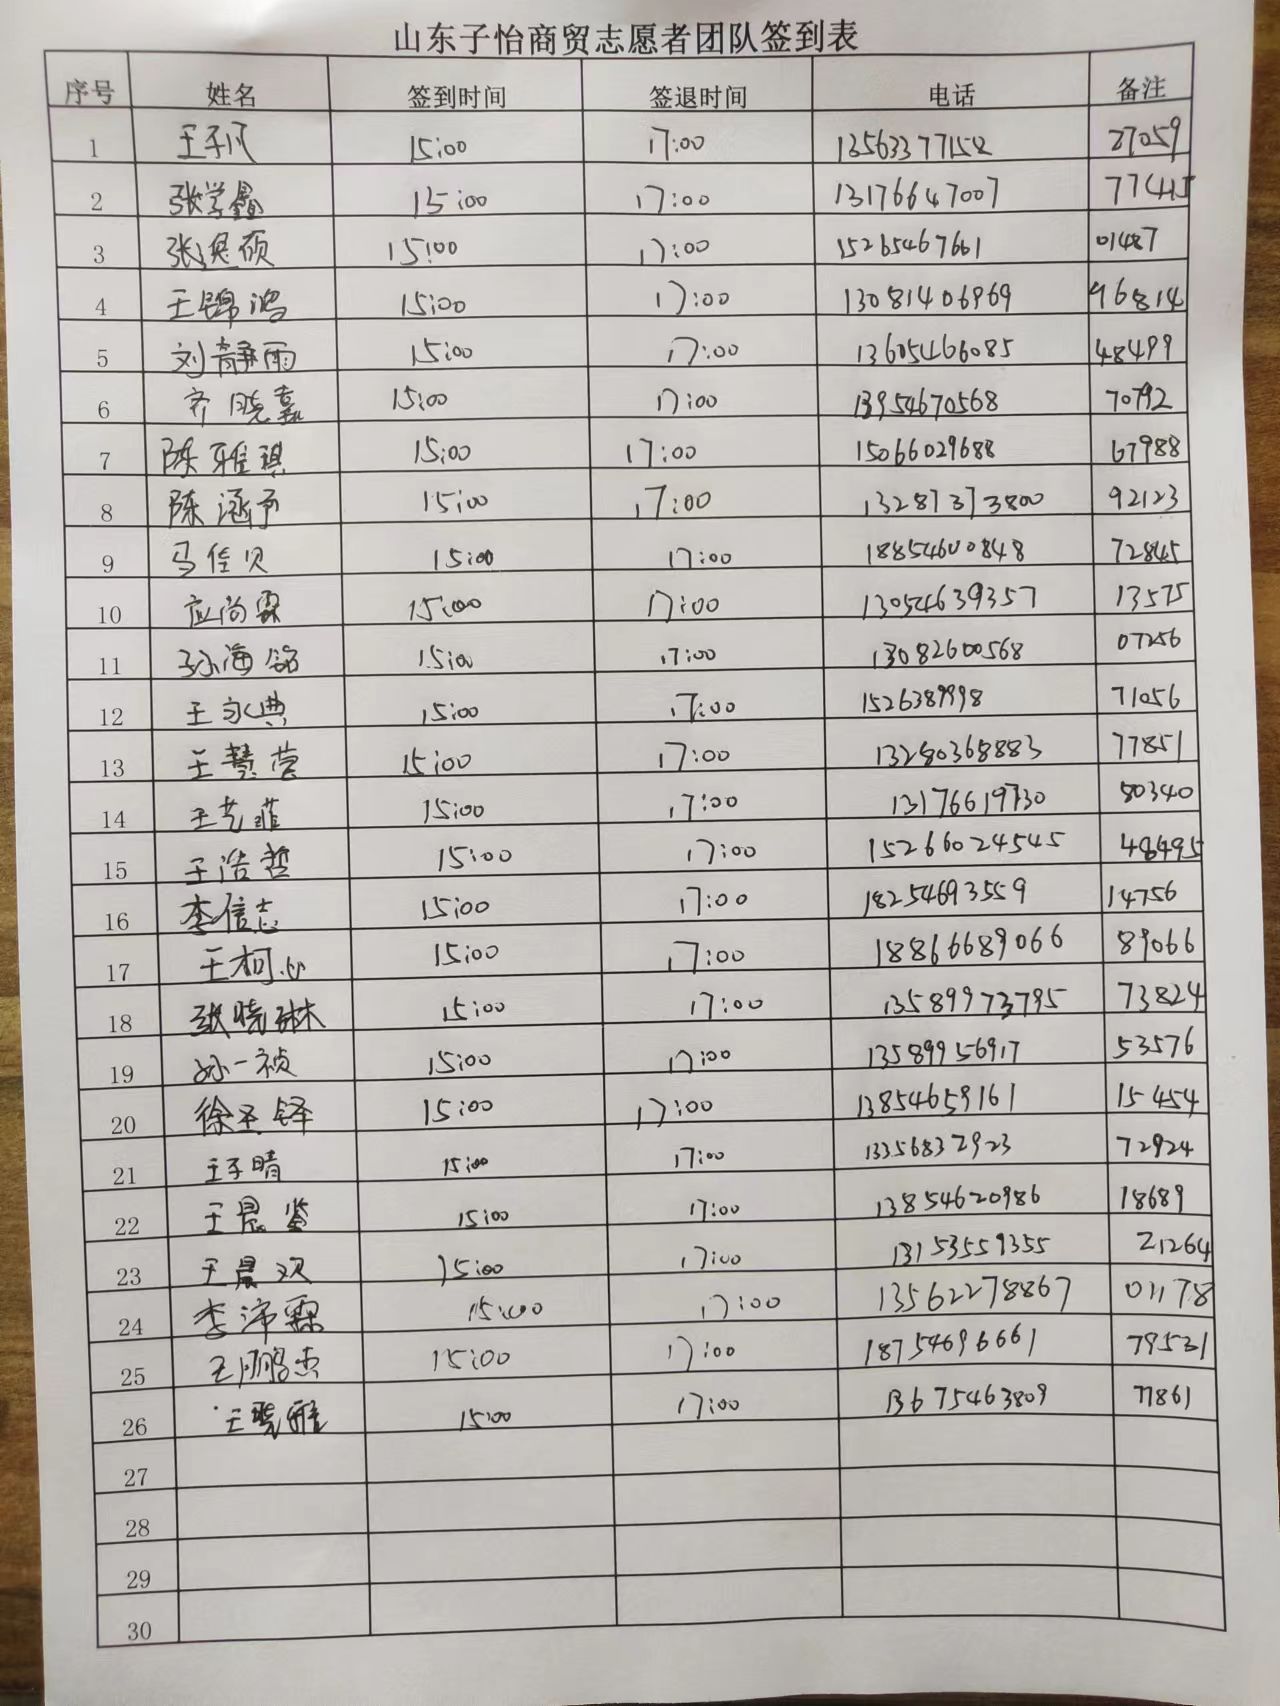 山东子怡商贸志愿者团队签到表
序号 姓名 签到时间 签退时间 电话 备注
1 王子凡 15:00 17:00 13563377152 27059
2 张学鑫 15:00 17:00 13176647007 77445
3 张恩硕 15:00 17:00 15265467661 01487
4 王锦鸿 15:00 17:00 13081406969 96814
5 刘静雨 15:00 17:00 13605466085 48499
6 齐晓嘉 15:00 17:00 13954670568 70792
7 陈雅琪 15:00 17:00 15066029688 67988
8 陈涵予 15:00 17:00 13287373800 92123
9 马佳贝 15:00 17:00 18854600848 72845
10 应尚霖 15:00 17:00 13054639357 13575
11 孙海铭 15:00 17:00 13082600568 07256
12 王永典 15:00 17:00 1526389998 71056
13 王慧莹 15:00 17:00 13280368883 77851
14 王艺菲 15:00 17:00 13176619730 50340
15 王浩哲 15:00 17:00 15266024545 48495
16 李信志 15:00 17:00 18254693559 14756
17 王柯心 15:00 17:00 18866689066 89066
18 张晓琳 15:00 17:00 13589973795 73824
19 孙一祯 15:00 17:00 13589956917 53576
20 徐圣铎 15:00 17:00 13854659161 15454
21 王子晴 15:00 17:00 13356837923 72924
22 王晨鉴 15:00 17:00 13854620986 18689
23 王晨双 15:00 17:00 13153559355 21264
24 李沛霖 15:00 17:00 13562278867 01178
25 王鹏杰 15:00 17:00 18754696661 79531
26 王晓雅 15:00 17:00 13675463809 77861
27
28
29
30